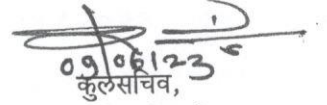 09/06/23
कुलसचिव,